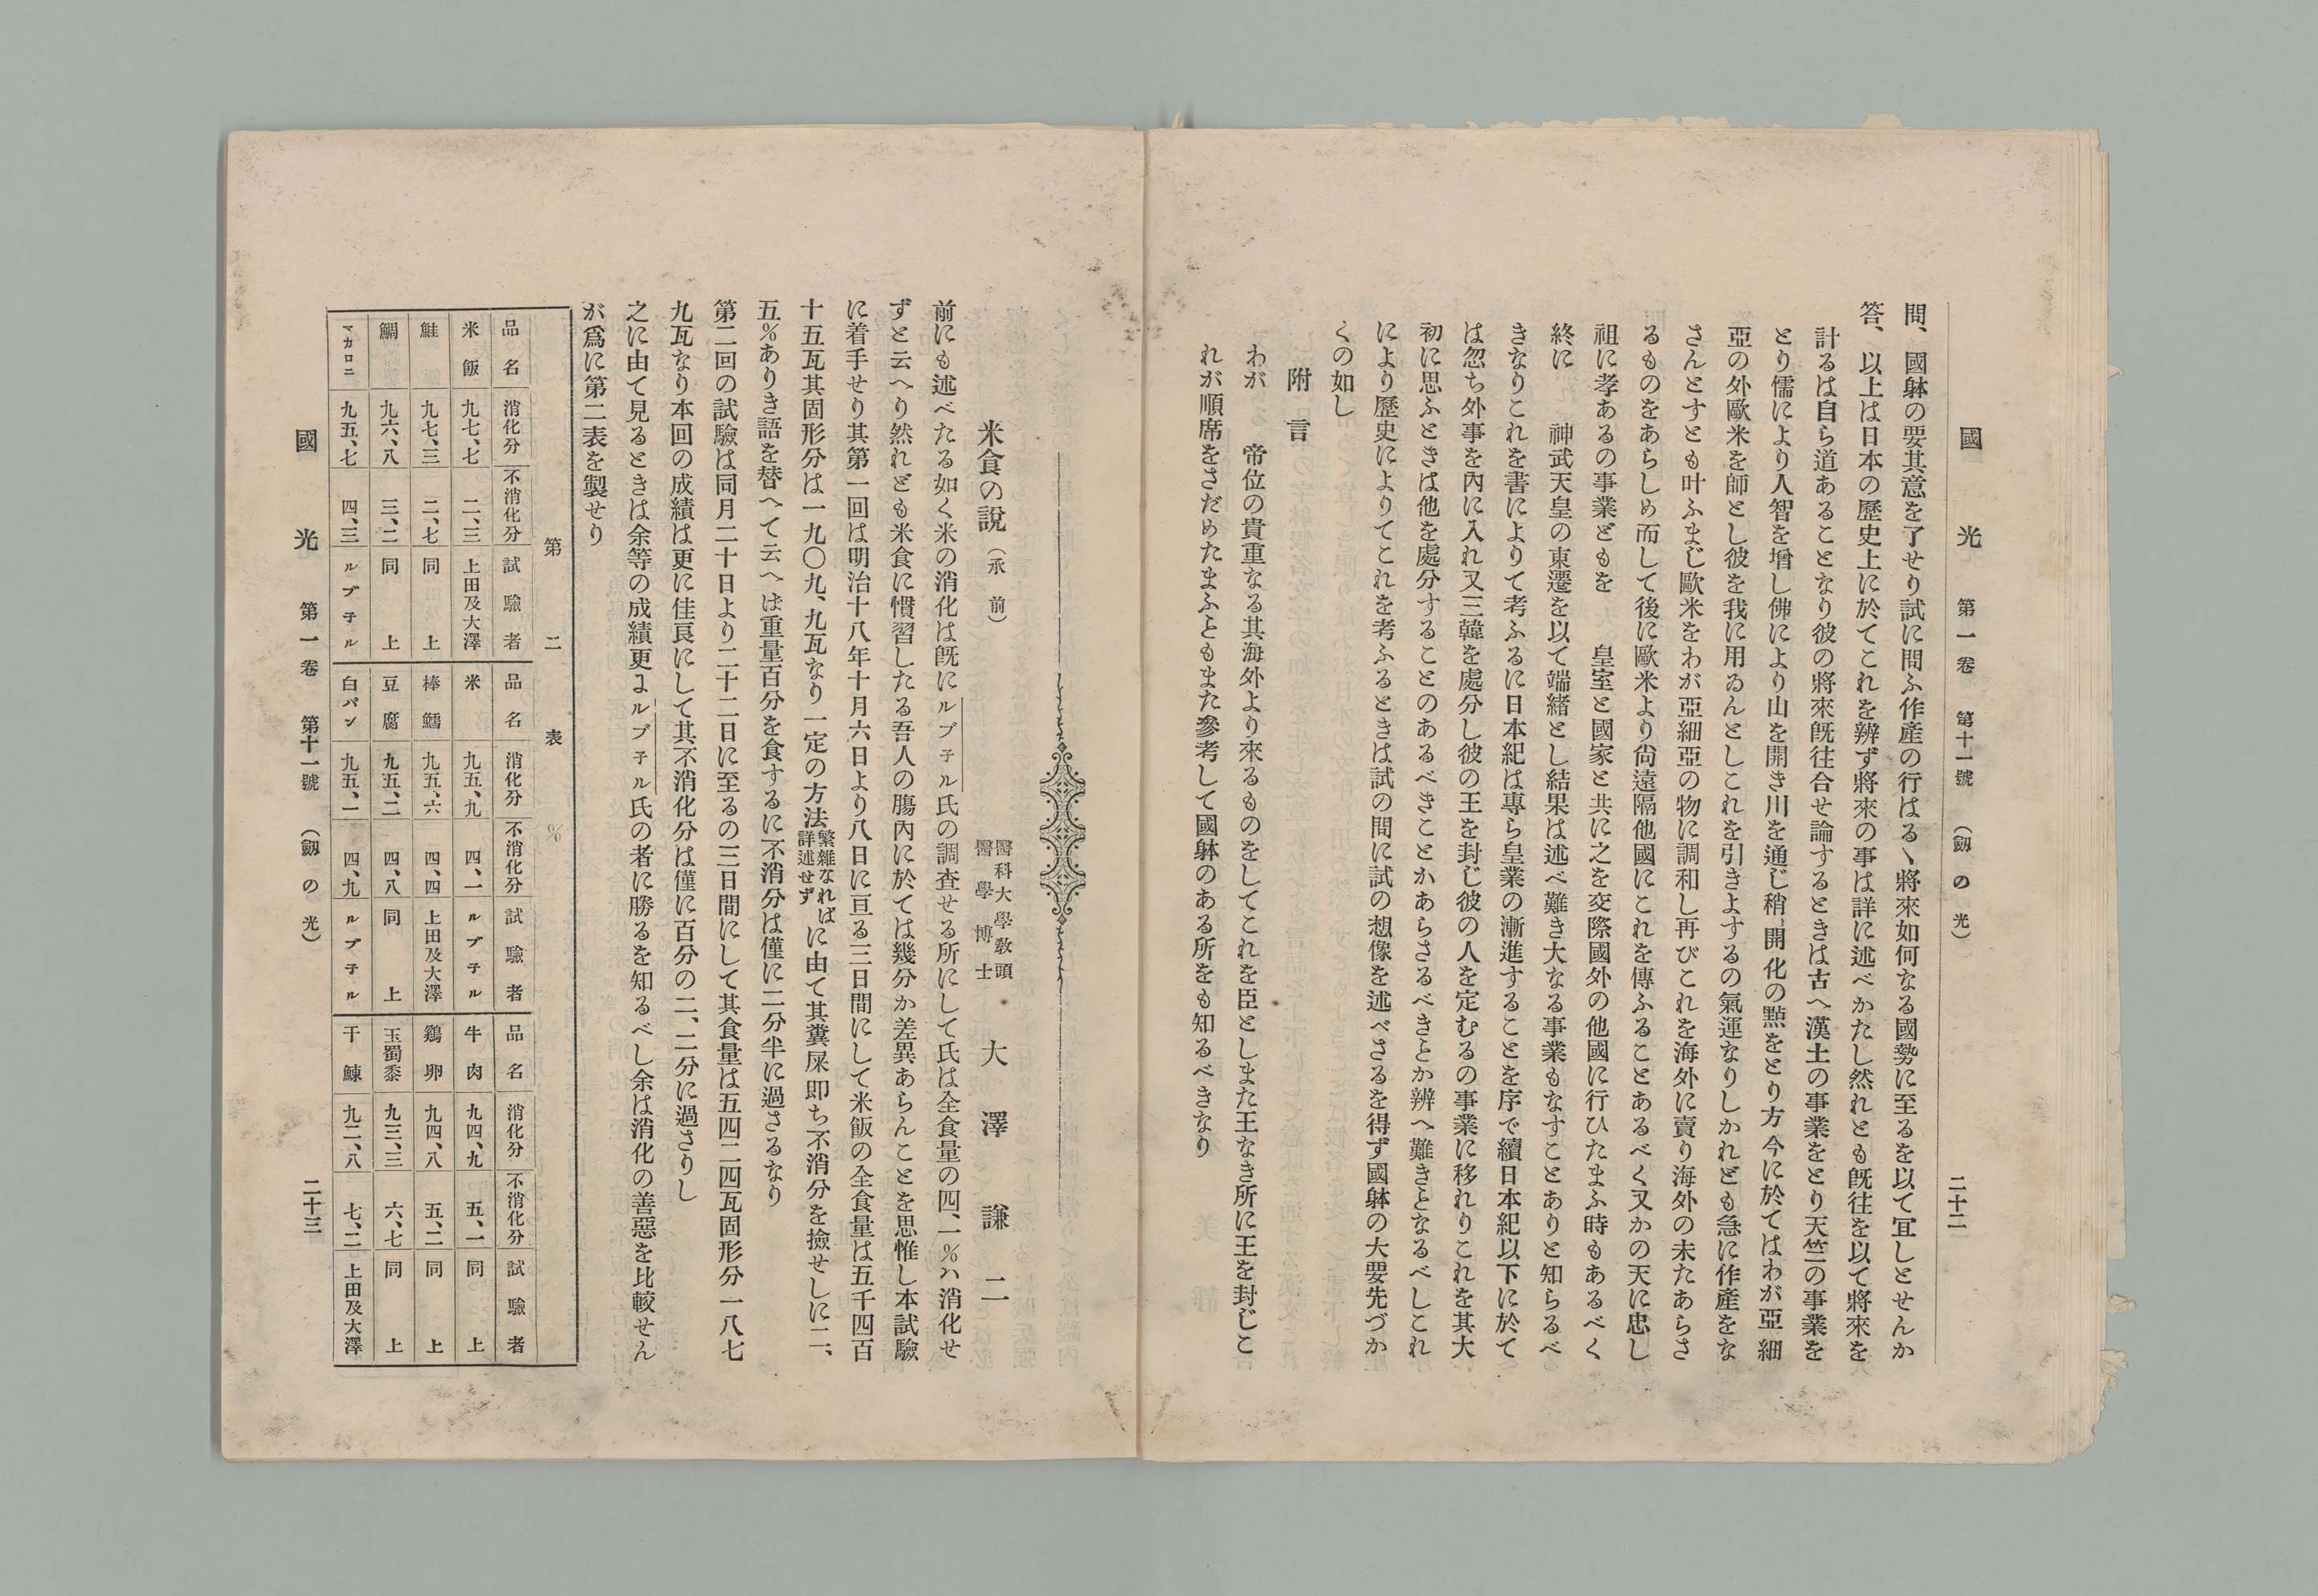 國光 第一卷 第十一號 (劔の光) 二十二
問、國躰の要其意を了せり試に問ふ作産の行はるヽ將來如何なる國勢に至るを以て冝しとせんか
答、以上は日本の歷史上に於てこれを辨ず將來の事は詳に述べかたし然れとも旣往を以て將來を
計るは自ら道あることなり彼の將來旣往合せ論するときは古へ漢土の事業をとり天竺の事業を
とり儒により人智を增し佛により山を開き川を通じ稍開化の㸃をとり方今に於てはわが亞細
亞の外歐米を師とし彼を我に用ゐんとしこれを引きよするの氣運なりしかれども急に作產をな
さんとすとも叶ふまじ歐米をわが亞細亞の物に調和し再びこれを海外に賣り海外の未たあらさ
るものをあらしめ而して後に歐米より尙遠隔他國にこれを傳ふることあるべく又かの天に忠し
祖に孝あるの事業どもを 皇室と國家と共に之を交際國外の他國に行ひたまふ時もあるべく
終に 神武天皇の東遷を以て端緒とし結果は述べ難き大なる事業もなすことありと知らるべ
きなりこれを書によりて考ふるに日本紀は專ら皇業の漸進することを序で續日本紀以下に於て
は忽ち外事を內に入れ又三韓を處分し彼の王を封じ彼の人を定むるの事業に移れりこれを其大
初に思ふときは他を處分することのあるべきことかあらさるべきとか辨へ難きとなるべしこれ
により歷史によりてこれを考ふるときは試の問に試の想像を述べさるを得ず國躰の大要先づか
くの如し
附言
わが 帝位の貴重なる其海外より來るものをしてこれを臣としまた王なき所に王を封じこ
れが順席をさだめたまふともまた參考して國躰のある所をも知るべきなり
米食の說(承前)
醫科大學敎頭
醫學博士
大澤謙二
前にも述べたる如く米の消化は旣にルブ子ル氏の調査せる所にして氏は全食量の四、一%ハ消化せ
ずと云へり然れども米食に慣習したる吾人の膓內に於ては幾分か差異あらんことを思惟し本試驗
に着手せり其第一回は明治十八年十月六日より八日に亘る三日間にして米飯の全食量は五千四百
十五瓦其固形分は一九〇九、九瓦なり一定の方法繁雜なれば詳述せずに由て其糞屎卽ち不消分を撿せしに二、
五%ありき語を替へて云へは重量百分を食するに不消分は僅に二分半に過さるなり
第二回の試驗は同月二十日より二十二日に至るの三日間にして其食量は五四二四瓦固形分一八七
九瓦なり本回の成績は更に佳良にして其不消化分は僅に百分の二、二分に過さりし
之に由て見るときは余等の成績更にルブ子ル氏の者に勝るを知るべし余は消化の善惡を比較せん
が爲に第二表を製せり
第二表 %
品名 消化分 不消化分 試驗者 品名 消化分 不消化分 試驗者 品名 消化分 不消化分 試驗者
米飯 九七、七 二、三 上田及大澤 米 九五、九 四、一 ルブ子ル 牛肉 九四、九 五、一 同上
鮭 九七、三 二、七 同上 棒鱈 九五、六 四、四 上田及大澤 鷄卵 九四、八 五、二 同上
鯛 九六、八 三、二 同上 豆腐 九五、二 四、八 同上 玉蜀黍 九三、三 六、七 同上
マカロニ 九五、七 四、三 ルブ子ル 白パン 九五、一 四、九 ルブ子ル 干鰊 九二、八 七、二 上田及大澤
國光 第一卷 第十一號 (劔の光) 二十三